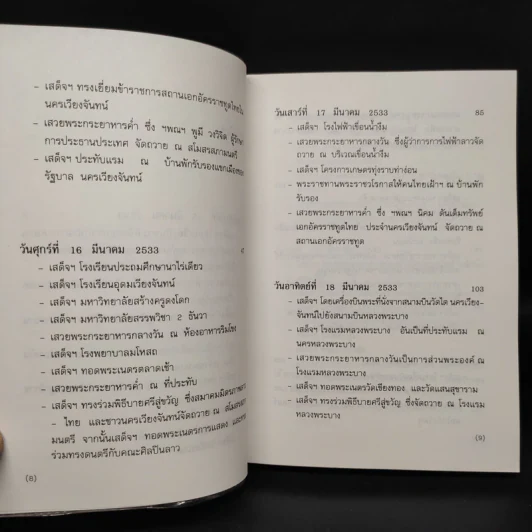 - เสด็จฯ ทรงเยี่ยมข้าราชการสถานเอกอัครราชทูตไทยใน
นครเวียงจันทน์
- เสวยพระกระยาหารค่ำ ซึ่ง ฯพณฯ พูมี วงวิจิด
การประธานประเทศ จัดถวาย ณ สโมสรสภามนตรี
- เสด็จฯ ประทับแรม ณ บ้านพักรับรองแขกเมืองของ
รัฐบาล นครเวียงจันทน์
วันศุกร์ที่ 16 มีนาคม 2533
- เสด็จฯ โรงเรียนประถมศึกษานาไร่เดียว
- เสด็จฯ โรงเรียนอุดมเวียงจันทน์
- เสด็จฯ มหาวิทยาลัยสร้างครูดงโดก
- เสด็จฯ มหาวิทยาลัยสรรพวิชา 2 ธันวา
- เสวยพระกระยาหารกลางวัน ณ ห้องอาหารริมโขง
- เสด็จฯ โรงพยาบาลมโหสถ
- เสด็จฯ ทอดพระเนตรตลาดเช้า
- เสวยพระกระยาหารค่ำ ณ ที่ประทับ
- เสด็จฯ ทรงร่วมพิธีบายศรีสู่ขวัญ ซึ่งสมาคมมิตรภาพลาว
- ไทย และชาวนครเวียงจันทน์จัดถวาย ณ สโมสรสภา
มนตรี จากนั้นเสด็จฯ ทอดพระเนตรการแสดง และทรง
ร่วมทรงดนตรีกับคณะศิลปินลาว
(8)
วันเสาร์ที่ 17 มีนาคม 2533 85
- เสด็จฯ โรงไฟฟ้าเขื่อนน้ำงึม
- เสวยพระกระยาหารกลางวัน ซึ่งผู้ว่าการการไฟฟ้าลาวจัด
ถวาย ณ บริเวณเขื่อนน้ำงึม
- เสด็จฯ โครงการเกษตรทุ่งราบท่าง่อน
- พระราชทานพระราชวโรกาสให้คนไทยเฝ้าฯ ณ บ้านพัก
รับรอง
- เสวยพระกระยาหารค่ำ ซึ่ง ฯพณฯ นิคม ตันเต็มทรัพย์
เอกอัครราชทูตไทย ประจำนครเวียงจันทน์ จัดถวาย ณ
สถานเอกอัครราชทูต
วันอาทิตย์ที่ 18 มีนาคม 2533 103
- เสด็จฯ โดยเครื่องบินพระที่นั่งจากสนามบินวัดไต นครเวียง-
จันทน์ไปยังสนามบินหลวงพระบาง
- เสด็จฯ โรงแรมหลวงพระบาง อันเป็นที่ประทับแรม ณ
นครหลวงพระบาง
- เสวยพระกระยาหารกลางวันเป็นการส่วนพระองค์ ณ
โรงแรมหลวงพระบาง
- เสด็จฯ ทอดพระเนตรวัดเชียงทอง และวัดแสนสุขาราม
- เสด็จฯ ทรงร่วมพิธีบายศรีสู่ขวัญ ซึ่งจัดถวาย ณ โรงแรม
หลวงพระบาง
(9)